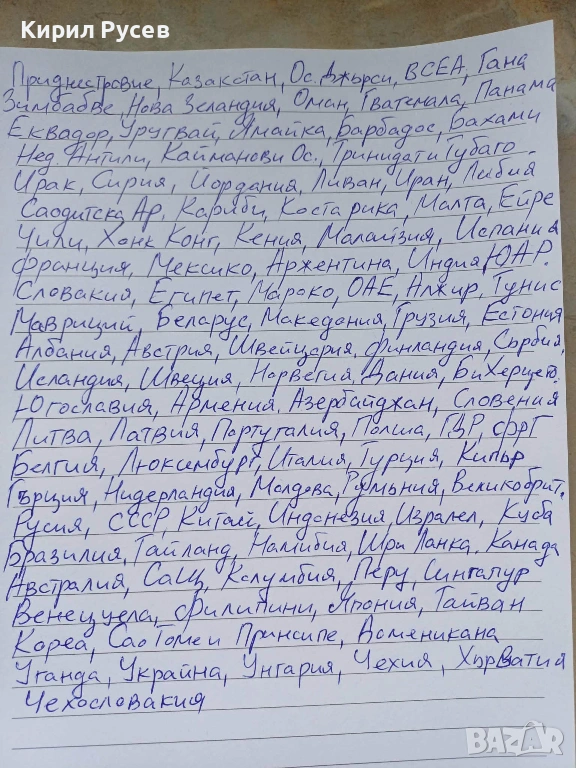 Кирил Русев
Приднестровие, Казакстан, Ос. Джърси, ВСЕА, Гана
Зимбабве, Нова Зеландия, Оман, Гватемала, Панама
Еквадор, Уругвай, Ямайка, Барбадос, Бахами
Нед. Антили, Кайманови Ос., Тринидат и Тубаго
Ирак, Сирия, Йордания, Ливан, Иран, Либия
Саодитска Ар, Кариби, Коста рика, Малта, Ейре
Чили, Хонк Конг, Кения, Малайзия, Испания
Франция, Мексико, Аржентина, Индия, ЮАР.
Словакия, Египет, Мароко, ОАЕ, Алжир, Тунис
Мавриций, Беларус, Македония, Грузия, Естония
Албания, Австрия, Швейцария, Финландия, Сърбия,
Исландия, Швеция, Норвегия, Дания, БиХерцего.
Югославия, Армения, Азербайджан, Словения
Литва, Латвия, Португалия, Полша, ГДР, ФРГ
Белгия, Люксембург, Италия, Турция, Кипър
Гърция, Нидерландия, Молдова, Румъния, Великобрит.
Русия, СССР, Китай, Индонезия, Израел, Куба
Бразилия, Тайланд, Намибия, Шри Ланка, Канада
Австралия, Сащ, Колумбия, Перу, Сингапур
Венецуела, Филипини, Япония, Тайван
Кореа, Сао Томе и Принсипе, Доменикана
Уганда, Украйна, Унгария, Чехия, Хърватия
Чехословакия
BAZAR